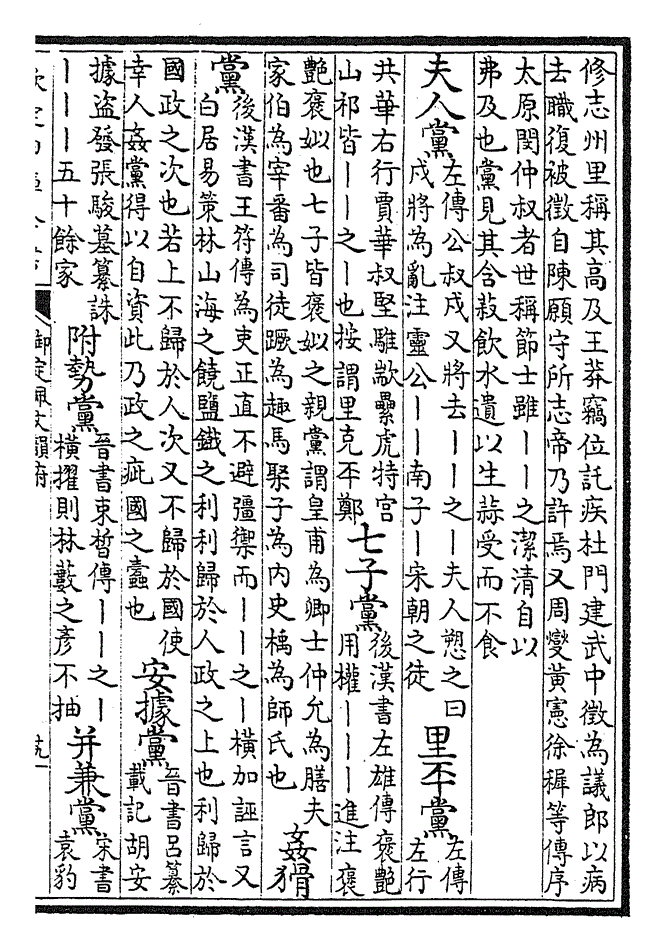 修志州里稱其高及王莽竊位託疾杜門建武中徵為議郎以病
去職復被徵自陳願守所志帝乃許焉又周燮黃憲徐穉等傳序
太原閔仲叔者世稱節士雖——之潔清自以
弗及也黨見其含菽飲水遺以生蒜受而不食
夫人黨
左傳公叔戍又將去——之—夫人愬之曰
戍將為亂注靈公——南子—宋朝之徒
里丕黨
左傳
左行
共華右行賈華叔堅騅歂纍虎特宮
山祁皆——之—也按謂里克丕鄭
七子黨
後漢書左雄傳褒艷
用權———進注褒
艷褒姒也七子皆褒姒之親黨謂皇甫為卿士仲允為膳夫
家伯為宰番為司徒蹶為趣馬聚子為內史楀為師氏也
姦猾
黨
後漢書王符傳為吏正直不避彊禦而——之—橫加誣言又
白居易策林山海之饒鹽鐵之利利歸於人政之上也利歸於
國政之次也若上不歸於人次又不歸於國使
幸人姦黨得以自資此乃政之疵國之蠹也
安據黨
晉書呂纂
載記胡安
據盜發張駿墓纂誅
———五十餘家
附勢黨
晉書束皙傳——之—
橫擢則林藪之彥不抽
并兼黨
宋書
袁豹
御定佩文韻府